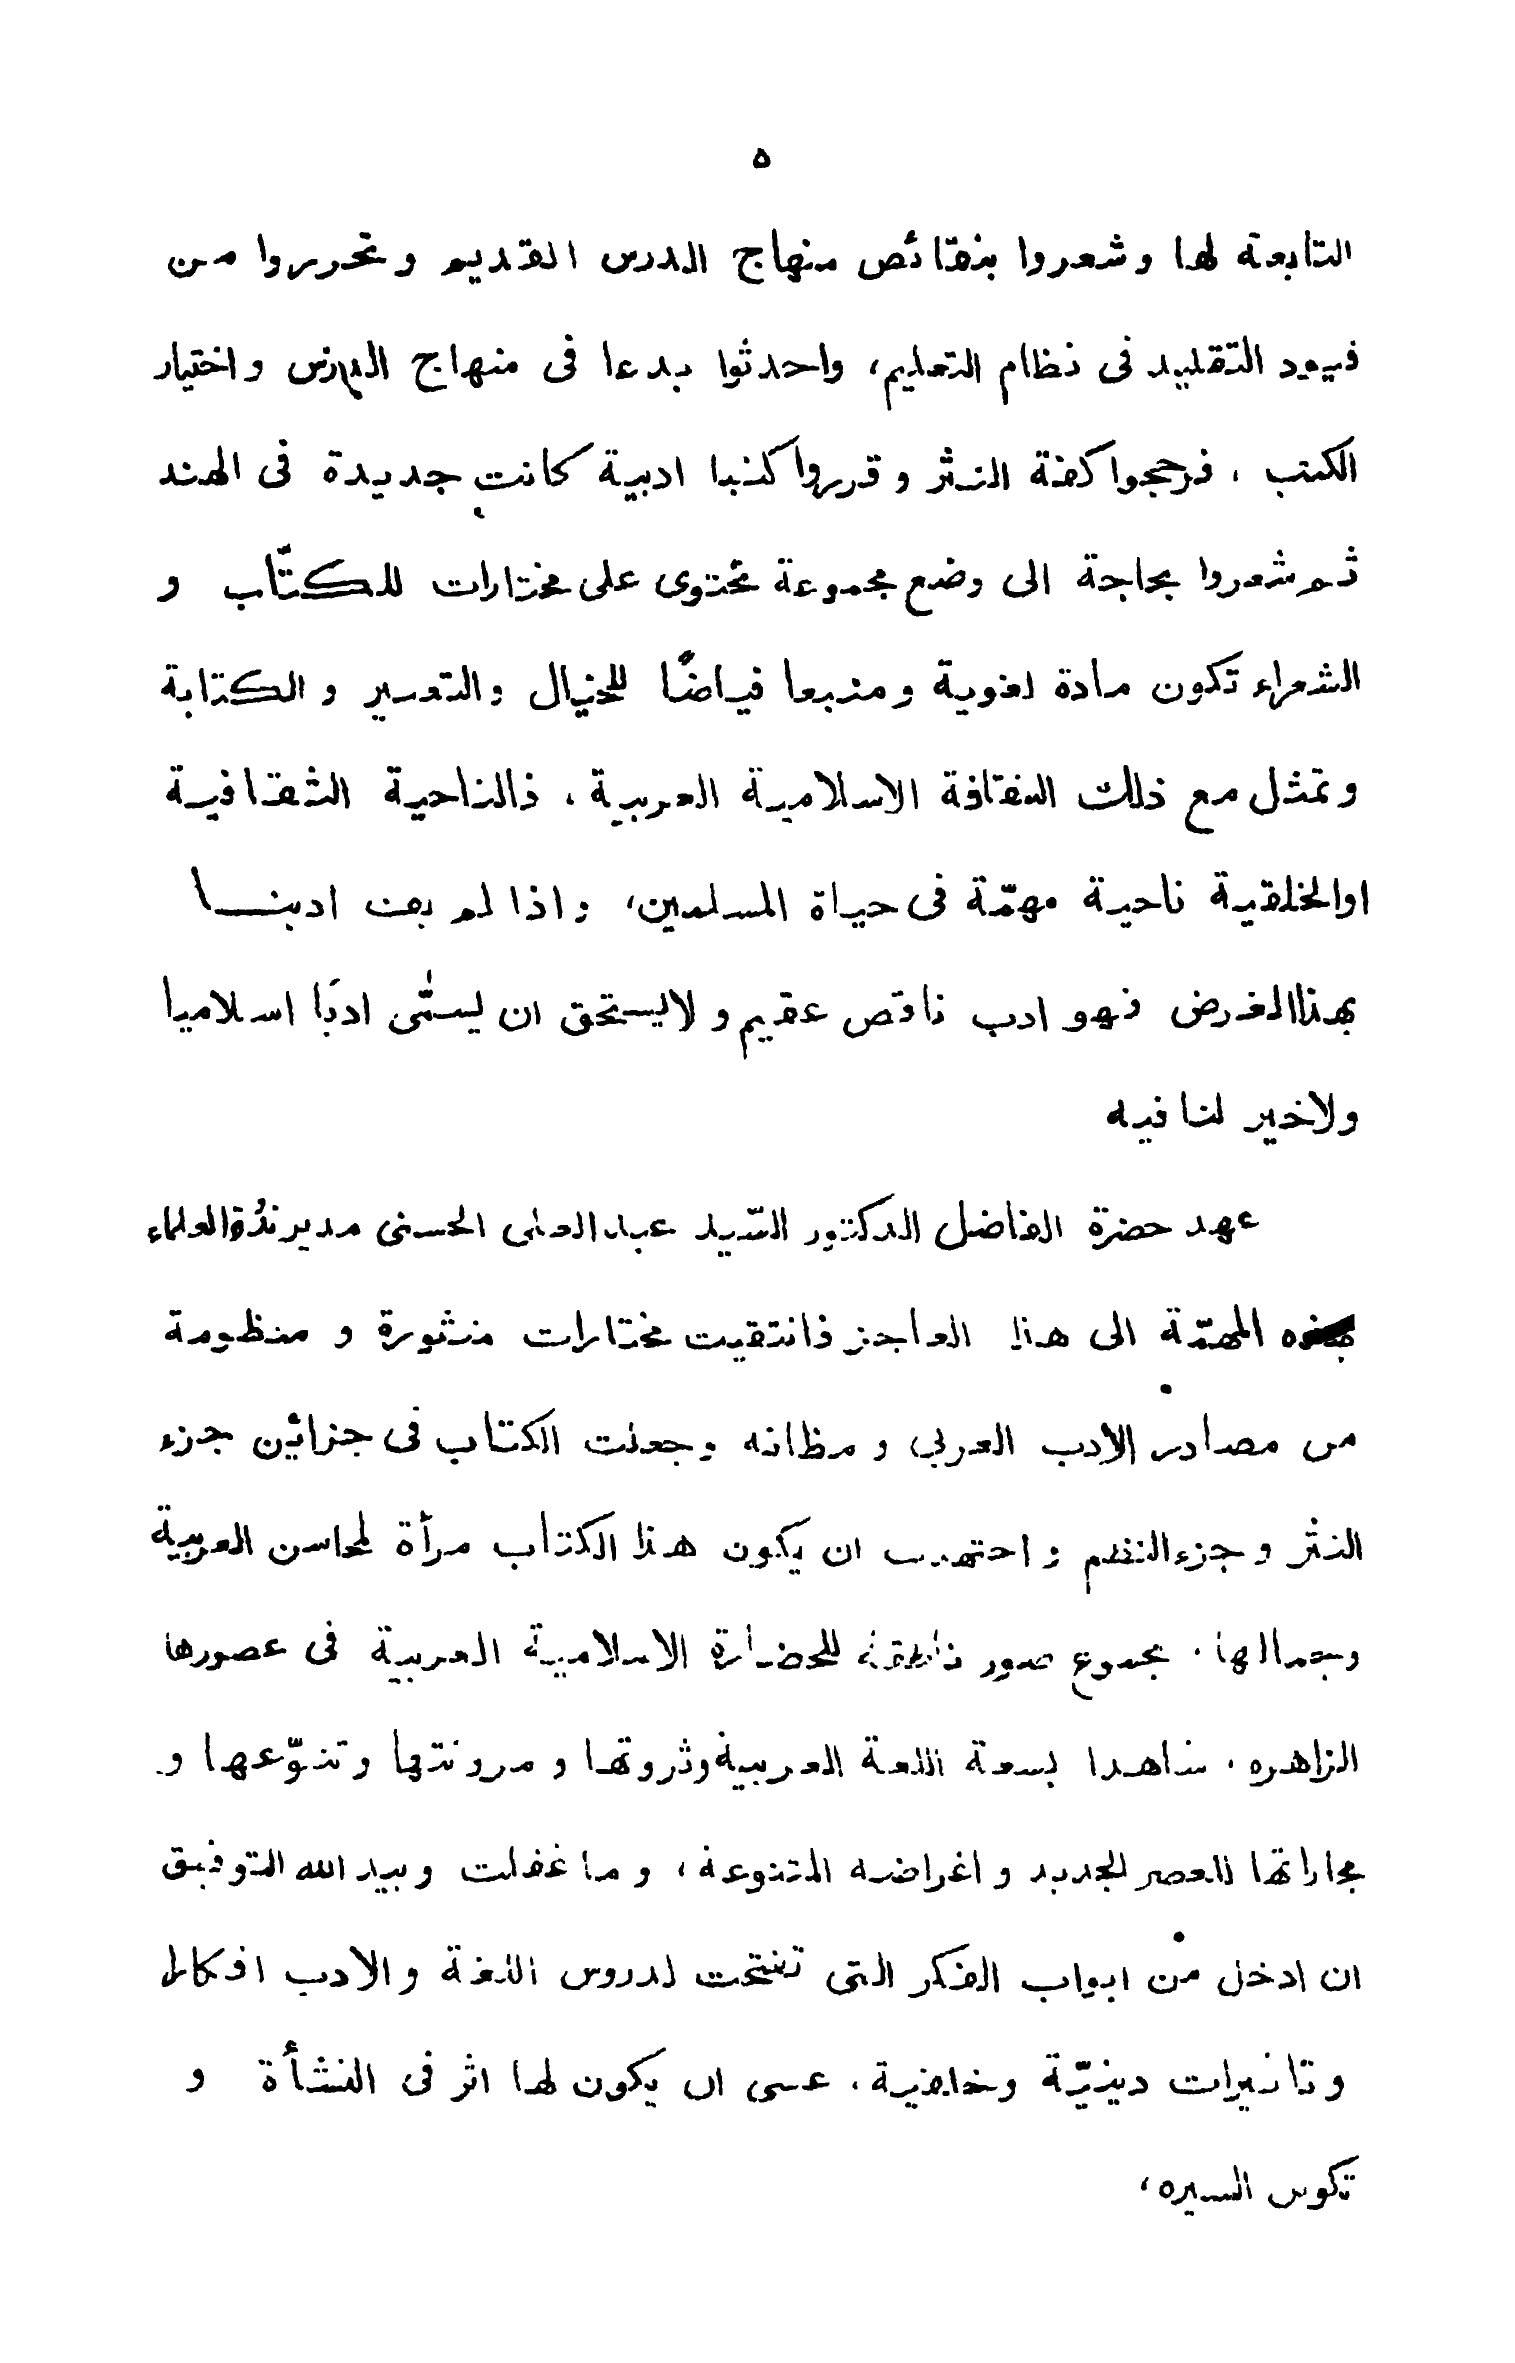 ٥
التابعة لها وشعروا بنقائص منهاج الدرس القديم وتحرروا من
قيود التقليد فى نظام التعليم، واحدثوا بدعا فى منهاج الدرس واختيار
الكتب ، فرجحوا كفة النثر وقرروا كتبا ادبية كانت جديدة فى الهند
ثم شعروا بحاجة الى وضع مجموعة تحتوى على مختارات للكتّاب و
الشعراء تكون مادة لغوية ومنبعا فياضًا للخيال والتعبير والكتابة
وتمثل مع ذلك الثقافة الاسلامية العربية ، فالناحية الثقافية
اوالخلقية ناحية مهمّة فى حياة المسلمين، واذا لم يف ادبنا
بهذاالغرض فهو ادب ناقص عقيم ولايستحق ان يسمّى ادبًا اسلاميا
ولاخير لنا فيه
عهد حضرة الفاضل الدكتور السّيد عبدالعلى الحسنى مدير ندوةالعلماء
بهذه المهمّة الى هذا العاجز فانتقيت مختارات منثورة و منظومة
من مصادر الادب العربى و مظانه وجعلت الكتاب فى جزائين جزء
النثر وجزءالنظم واجتهدت ان يكون هذا الكتاب مرأة لمحاسن العربية
وجمالها ، مجموع صور ناطقة للحضارة الاسلامية العربية فى عصورها
الزاهره ، شاهدا بسعة اللغة العربية وثروتها و مرونتها وتنوّعها و
مجاراتها للعصر الجديد واغراضه المتنوعة ، وما غفلت وبيد الله التوفيق
ان ادخل من ابواب الفكر التى تفتحت لدروس اللغة والادب افكارا
وتاثيرات دينيّة وخلقية ، عسى ان يكون لها اثر فى النشأة و
تكوين السيره ،